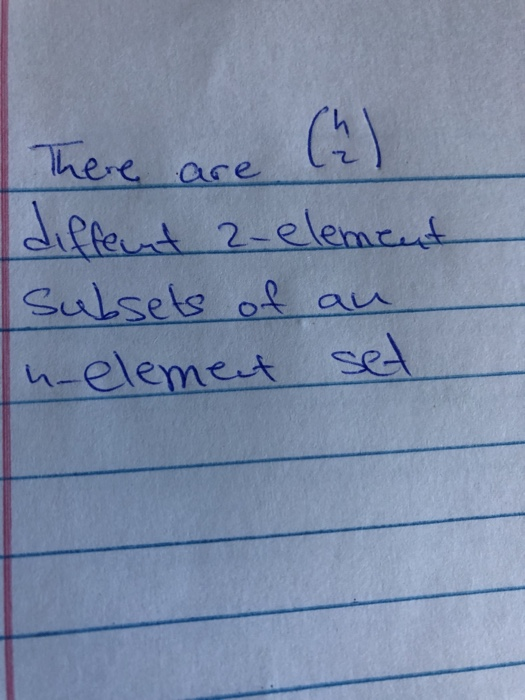 There are (n 2)
diffeent 2-element
subsets of an
n-element set